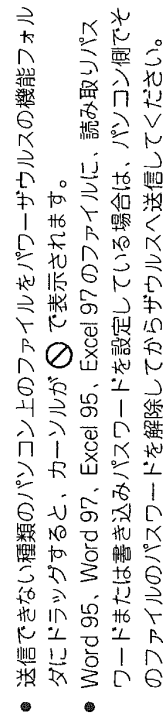 ● 送信できない種類のパソコン上のファイルをパワーザウルスの機能フォル
ダにドラッグすると、カーソルが で表示されます。
● Word 95、Word 97、Excel 95、Excel 97のファイルに、読み取りパス
ワードまたは書き込みパスワードを設定している場合は、パソコン側でそ
のファイルのパスワードを解除してからザウルスへ送信してください。